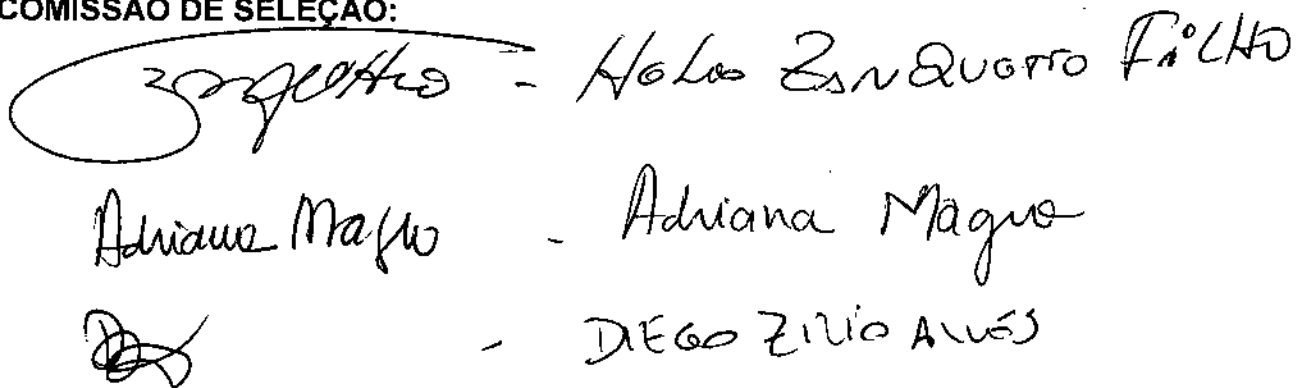 COMISSÃO DE SELEÇÃO:
- Helio Zanquetto Filho
Adriana Magno - Adriana Magno
- DIEGO ZILIO ALVES